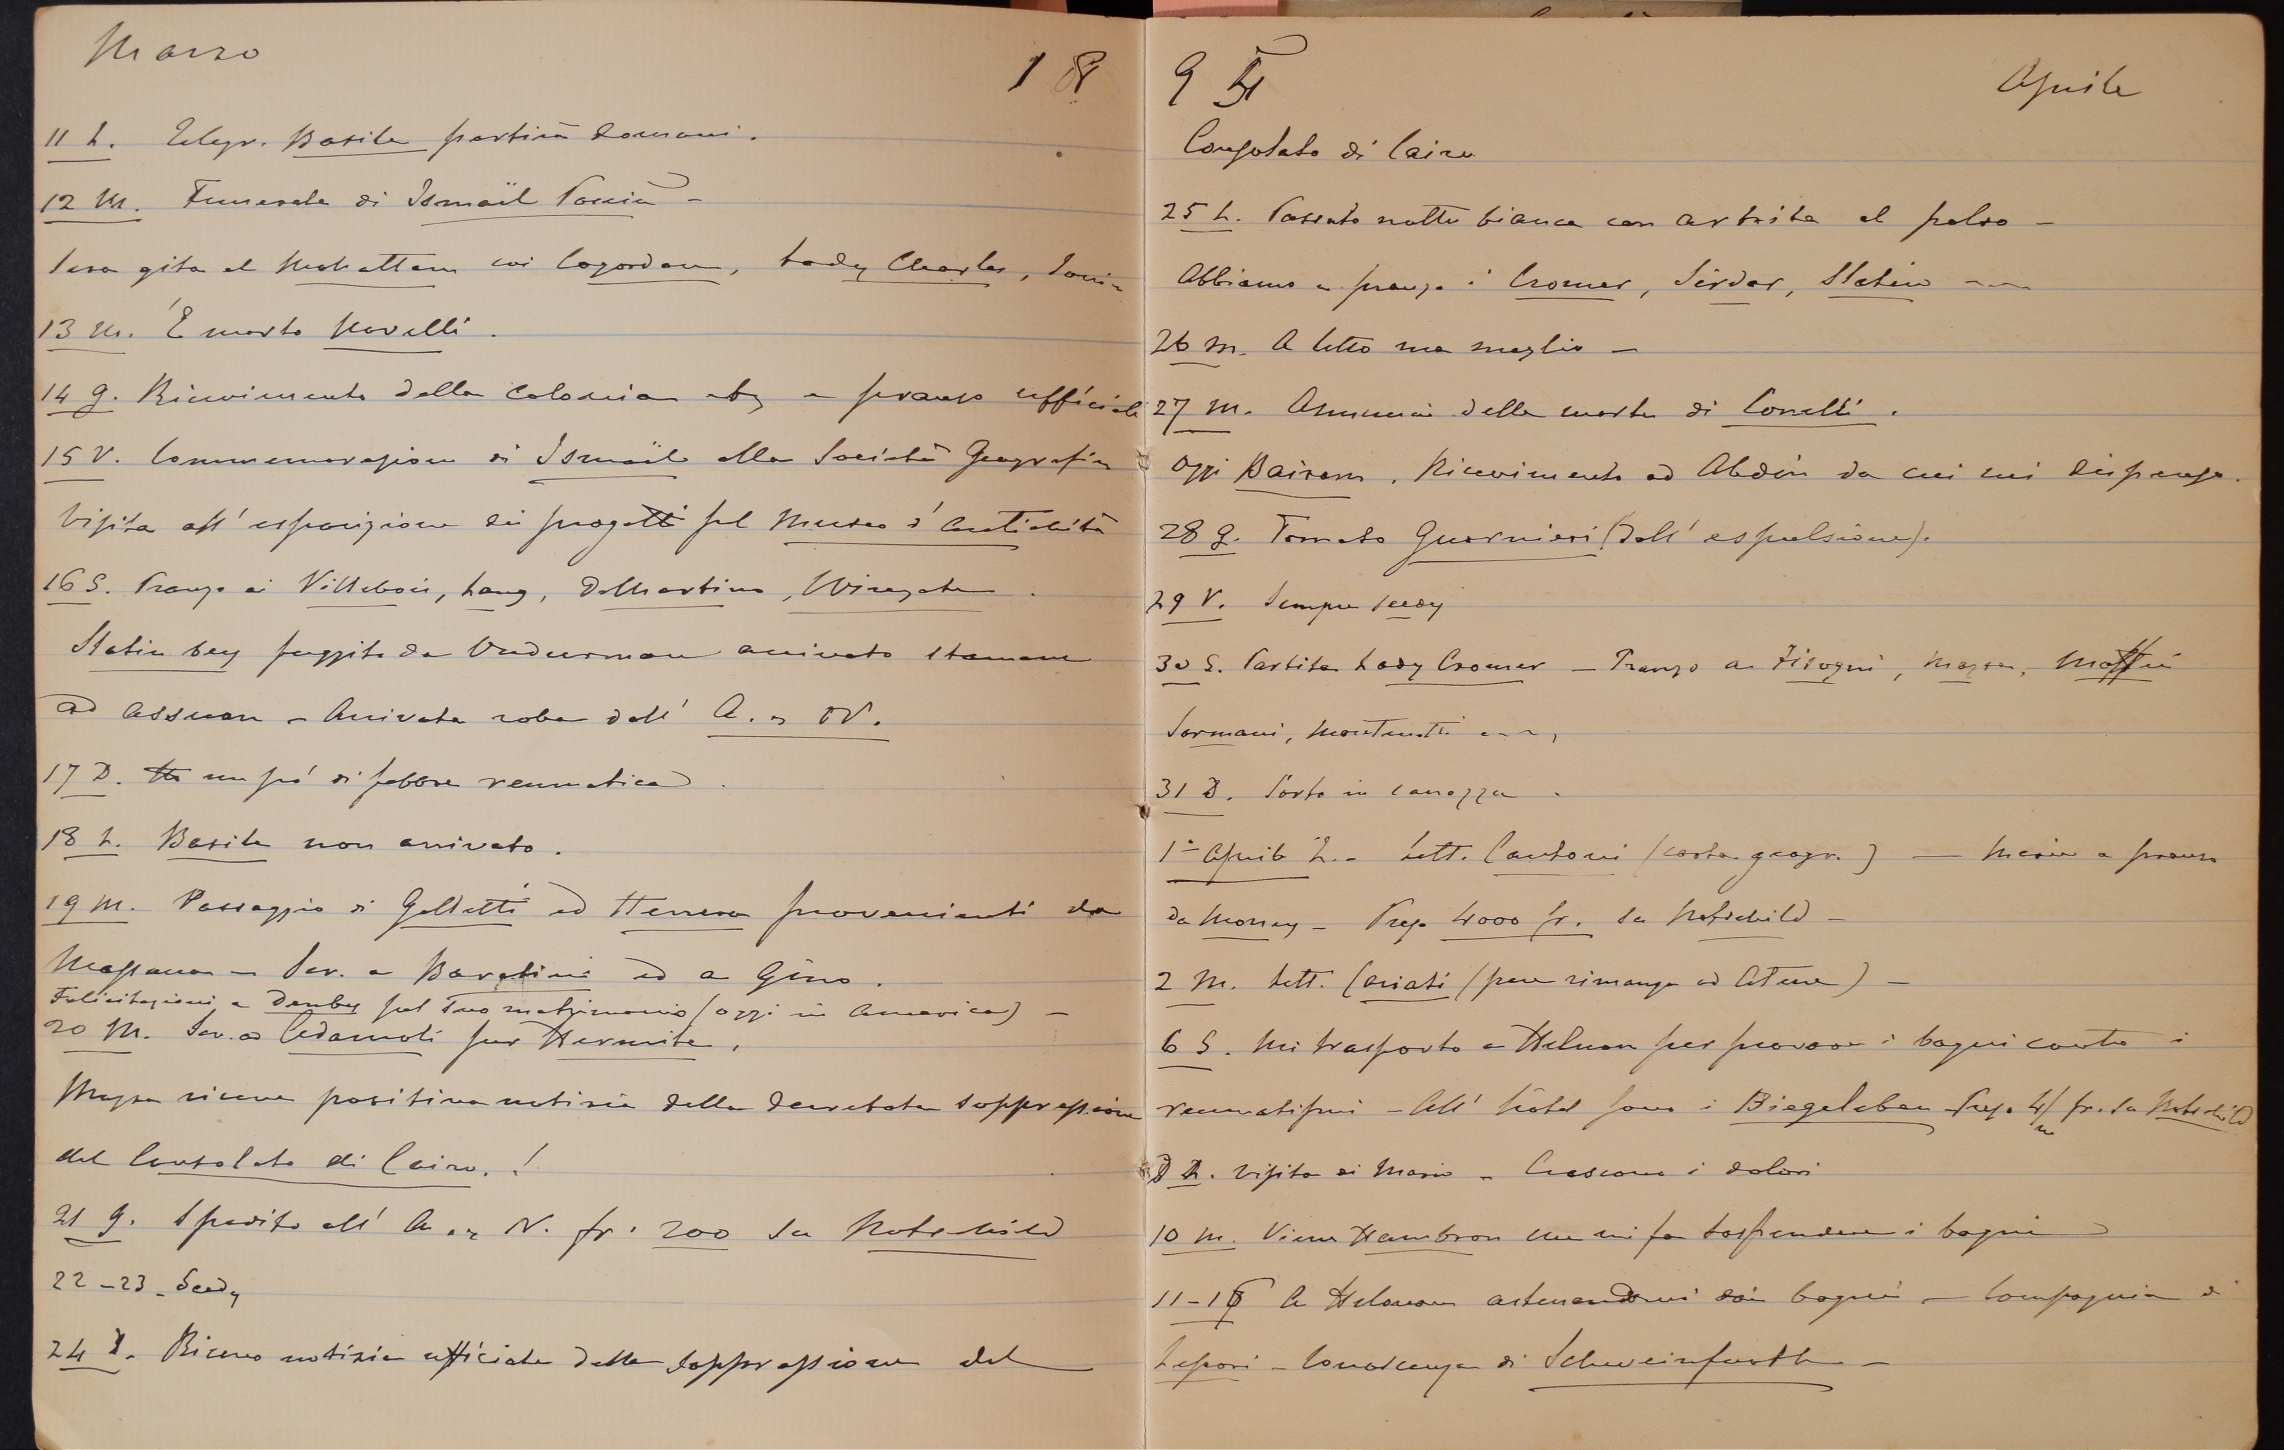 Marzo
18
11 L. Telegr. Basile partirà domani.
12 M. Funerale di Ismaïl Pascià -
Sera gita al Mokattam coi Cogordan, Lady Charles,
13 M. È morto Novelli.
14 g. Ricevimento della colonia e pranzo ufficiale
15 V. Commemorazione di Ismaïl alla Società Geografica
Visita all'esposizione dei progetti pel Museo d'antichità
16 S. Pranzo ai Villebois, Lang, DeMartino, Wingate.
Slatin bey fuggito da Omdurman arrivato stamane
ad Assuan - Arrivata roba dall' A. e N.
17 D. un pó di febbre reumatica.
18 L. Basile non arrivato.
19 M. Passaggio di Galletti ed Herrera provenienti da
Massaua - Scr. a Baratieri ed a Gino.
Felicitazioni a Denby pel suo matrimonio (oggi in America) -
20 M. Scr. ad Adamoli per Hermite.
Mazza riceve positiva notizia della decretata soppressione
del Consolato di Cairo.!
21 g. Spedito all' A. e N. fr. 200 su Rotschild
22-23 - Seedy
24 D. Ricevo notizia ufficiale della soppressione del
95
Aprile
Consolato di Cairo
25 L. Passato notte bianca con artrite al polso -
Abbiamo a pranzo i Cromer, Sirdar, Slatin
26 M. A letto ma meglio -
27 M. Annuncio della morte di Conelli.
Oggi Bairam. Ricevimento ad Abdin da cui mi dispenso.
28 g. Tornato Guarnieri (dall'espulsione).
29 V. Sempre seedy
30 S. Partita Lady Cromer - Pranzo a Fisogni, Mazza, Maffei
Sormani, Montenotti
31 D. Sorto in carrozza.
1° Aprile L. - Lett. Cantoni (carta geogr.) - Marie a pranzo
da Money - Preso 4000 fr. su Rotschild -
2 M. Lett. Curiati (pare rimanga ad Atene) -
6 S. Mi trasporto a Heluan per provare i bagni contro i
reumatismi - All' hôtel sono i Biegeleben - Preso 4/m fr. su Rotschild
8 L. Visita di Marie - Crescono i dolori
10 M. Viene Hambron che mi fa sospendere i bagni
11-18 A Helouan astenendomi dai bagni - Compagnia di
Lepori - Conoscenza di Schweinfurth -